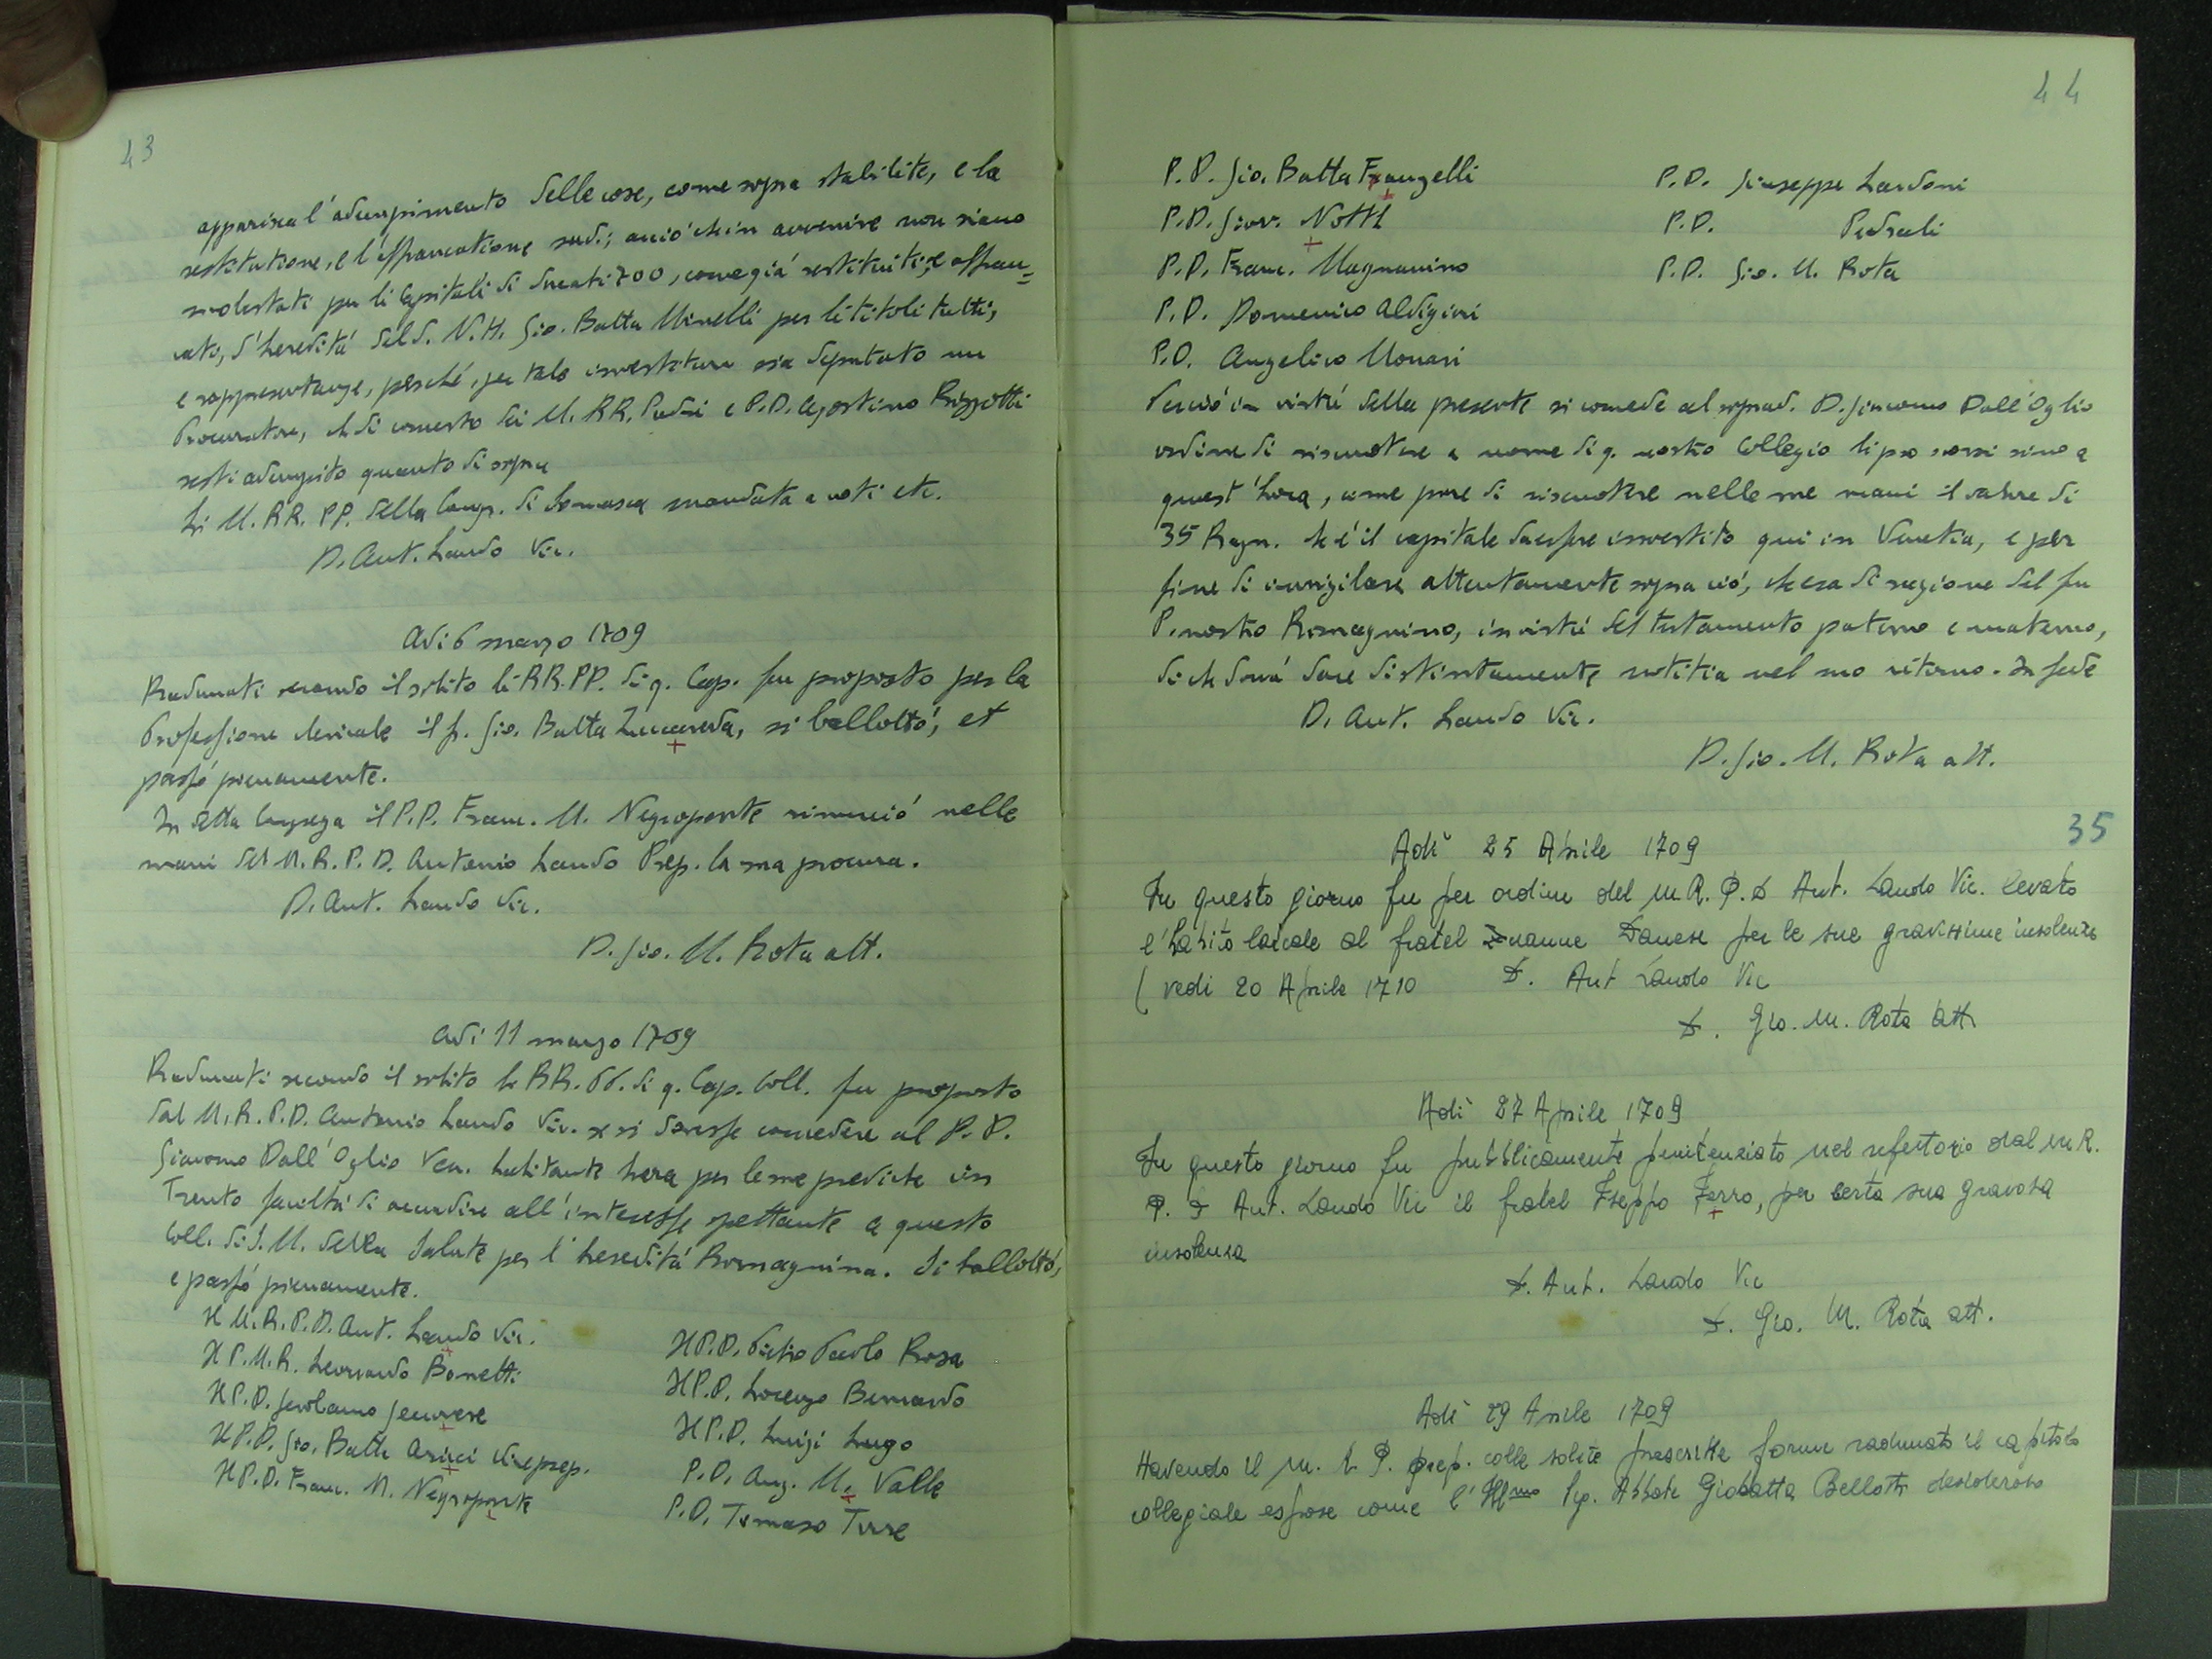 43
apparisca l'adempimento delle cose, come sopra stabilite, e la
restitutione, e l'affrancatione sud.; acciò che in avvenire non siano
molestati per li capitali di ducati 700, come già restituiti, e affran=
cati, d'heredità del q. N. H. Gio. Batta Minelli per li titoli tutti,
e rappresentanze, perché, per tale investitura sia deputato un
Procuratore, che di consenso dei M. RR. Padri e P. D. Agostino Rizzotti
resti adempito quanto di sopra
Li M. RR. PP. della Congr. di Somasca mandata a voti etc.
D. Ant. Lando Vic.
Adi 6 marzo 1709
Radunati secondo il solito li RR. PP. di q. Cap. fu proposto per la
Professione clericale il fr. Gio. Batta Zuccareda, si ballottò, et
passò pienamente.
In detta Congrega il P. D. Franc. M. Negroponte rinunciò nelle
mani del M. R. P. D. Antonio Lando Prep. la sua procura.
D. Ant. Lando Vic.
D. Gio. M. Rota att.
Adi 11 marzo 1709
Radunati secondo il solito li RR. PP. di q. Cap. Coll. fu proposto
dal M. R. P. D. Antonio Lando Vic. se si dovesse concedere al P. D.
Giacomo Dall'Oglio Ven. habitante hora per le sue prediche in
Trento facoltà di accudire all'interesse spettante a questo
Coll. di S. M. della Salute per l'heredità Romagnina. Si ballottò,
e passò pienamente.
Il M. R. P. D. Ant. Lando Vic.
Il P. M. R. Leonardo Bonetti
Il P. D. Gerolamo Genovese
Il P. D. Gio. Batta Arici Viceprep.
Il P. D. Franc. M. Negroponte
Il P. D. Pietro Paolo Rosa
Il P. D. Lorenzo Bernardo
Il P. D. Luigi Lugo
P. D. Ang. M. Valle
P. D. Tomaso Torre
44
P. D. Gio. Batta Frangelli
P. D. Giov. Notti
P. D. Franc. Magnanino
P. D. Domenico Aldigini
P. D. Angelico Monari
P. D. Giuseppe Landoni
P. D. Pedrali
P. D. Gio. M. Rota
Perciò in virtù della presente si concede al soprad. D. Giacomo Dall'Oglio
ordine di riscuotere a nome di q. nostro Collegio li pro scorsi sino a
quest'hora, come pure di riscuotere nelle sue mani il valore di
35 Ragn. ch'è il capitale da essere investito qui in Venetia, e per
fine di invigilare attentamente sopra ciò, che era di ragione del fu
P. nostro Romagnino, in virtù del testamento paterno e materno,
di che dovrà dare distintamente notitia nel suo ritorno. In fede
D. Ant. Lando Vic.
D. Gio. M. Rota att.
35
Adì 25 Aprile 1709
In questo giorno fu per ordine del M. R. P. D. Ant. Lando Vic. levato
l'habito laicale al fratel Zuanne Danese per le sue gravissime insolenze
( vedi 20 Aprile 1710 D. Ant Lando Vic
D. Gio. M. Rota att
Adì 27 Aprile 1709
In questo giorno fu pubblicamente penitenziato nel refettorio dal M. R.
P. D Ant. Lando Vic il fratel Iseppo Ferro, per certa sua gravosa
insolenza
D. Ant. Lando Vic
D. Gio. M. Rota att.
Adì 29 Aprile 1709
Havendo il M. R. P. Prep. colle solite prescritte forme radunato il capitolo
collegiale espose come l'Ill.mo Sig. Abbate Giobatta Bellotti desideroso